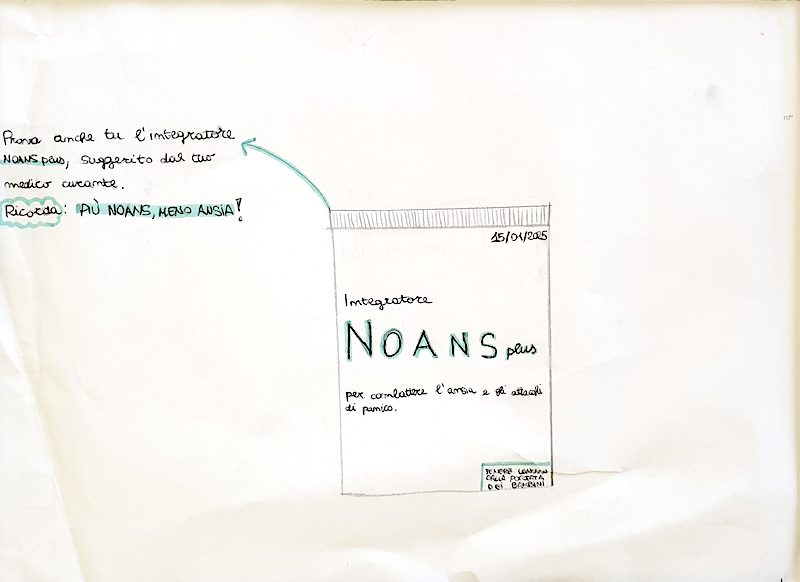 Prova anche tu l'integratore
NOANS plus, suggerito dal tuo
medico curante.
Ricorda: PIÙ NOANS, MENO ANSIA!
15/01/2025
Integratore
NOANS plus
per combattere l'ansia e gli attacchi
di panico.
TENERE LONTANO
DALLA PORTATA
DEI BAMBINI